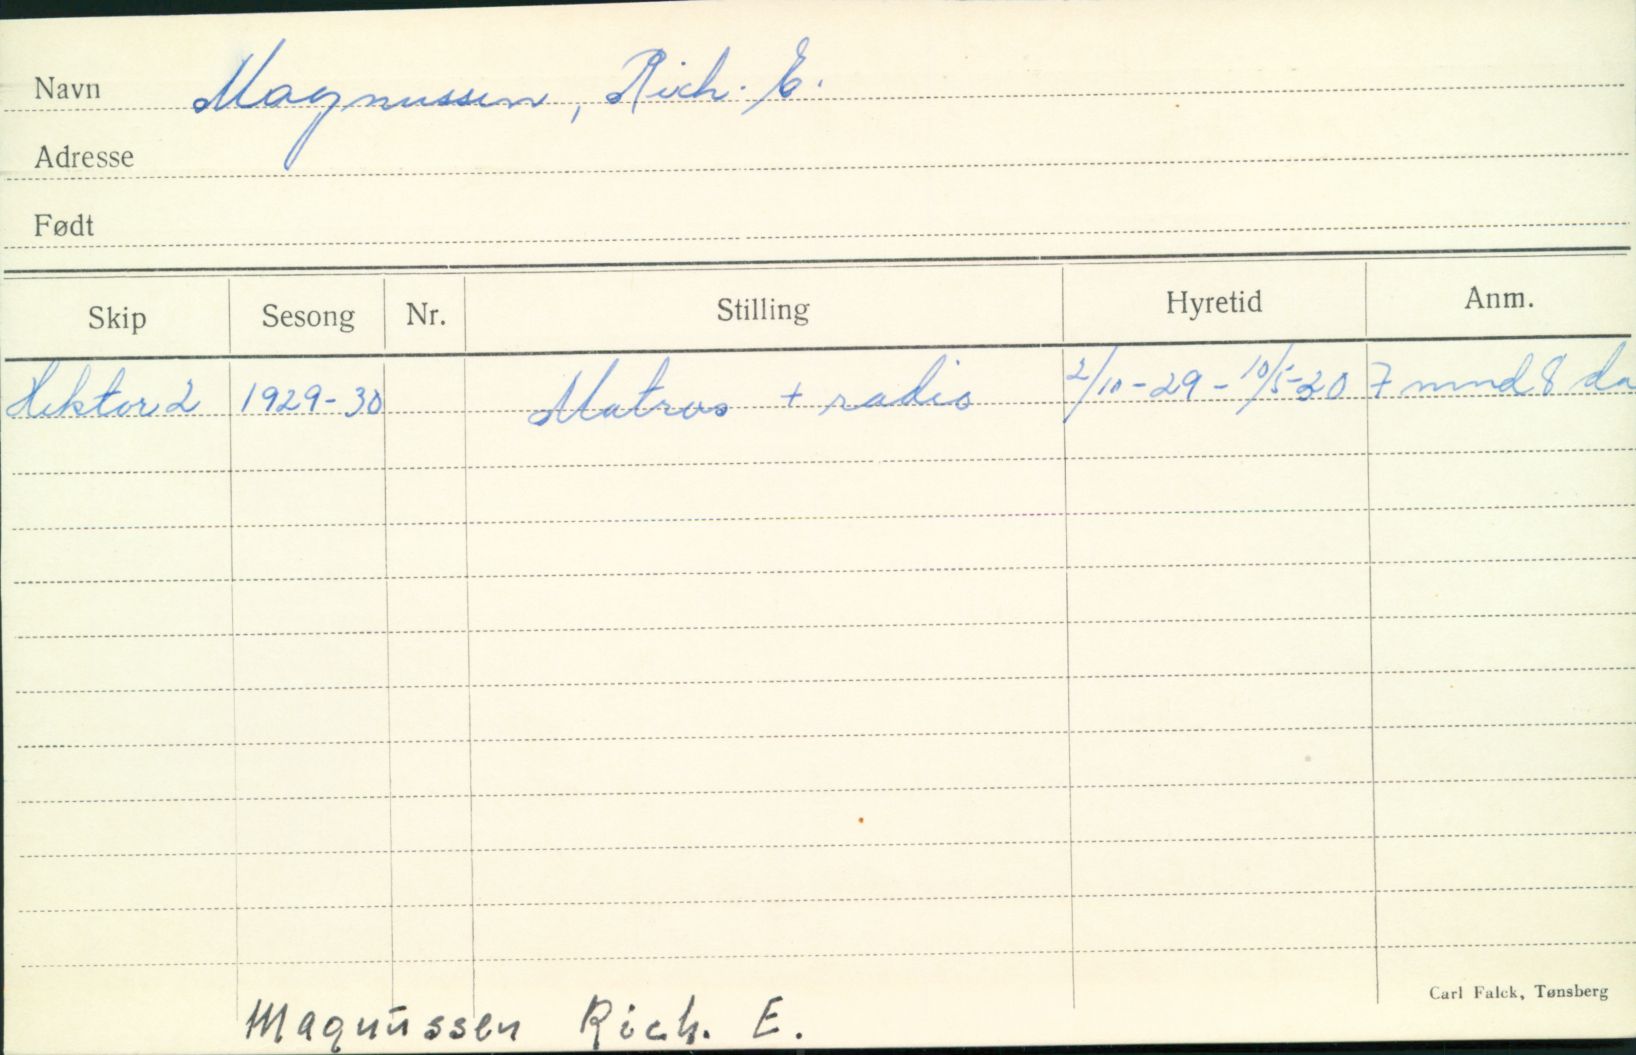 Navn Magnussen, Rich. E.
Adresse
Født
Skip Sesong Nr. Stilling Hyretid Anm.
Hektor 2 1929-30 Matros + radio 2/10-29 - 10/5-30 7 mnd 8 da
Carl Falck, Tønsberg
Magnussen Rich. E.